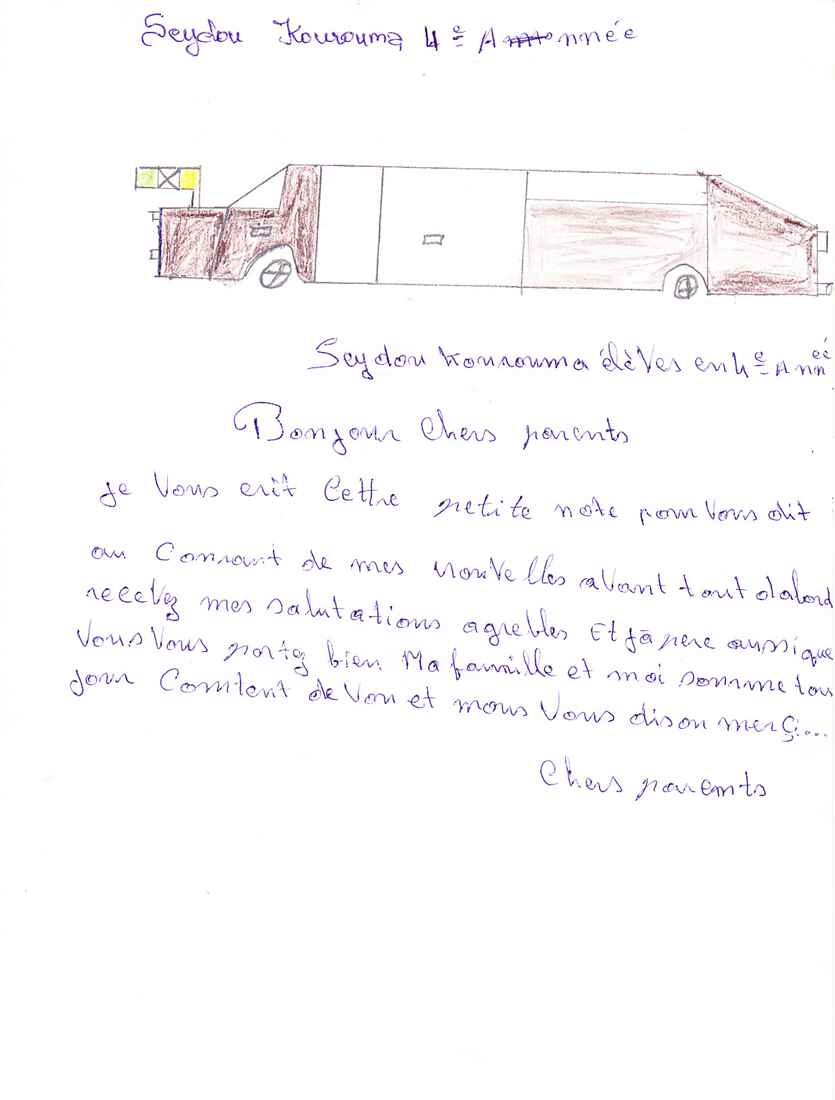 Seydou Kourouma 4e Année
Seydou Kourouma élèves en 4e Année
Bonjour Chers parents
Je Vous erit Cettre petite note pour Vous dit
au Conrant de mes nouvelles avant tout dabord
recevez mes salutations agrebles Et Jàpere aussique
Vous Vous portez bien. Ma famille et moi somme tou
jour Comtent de Vou et mous Vous dison merçi...
Chers parents